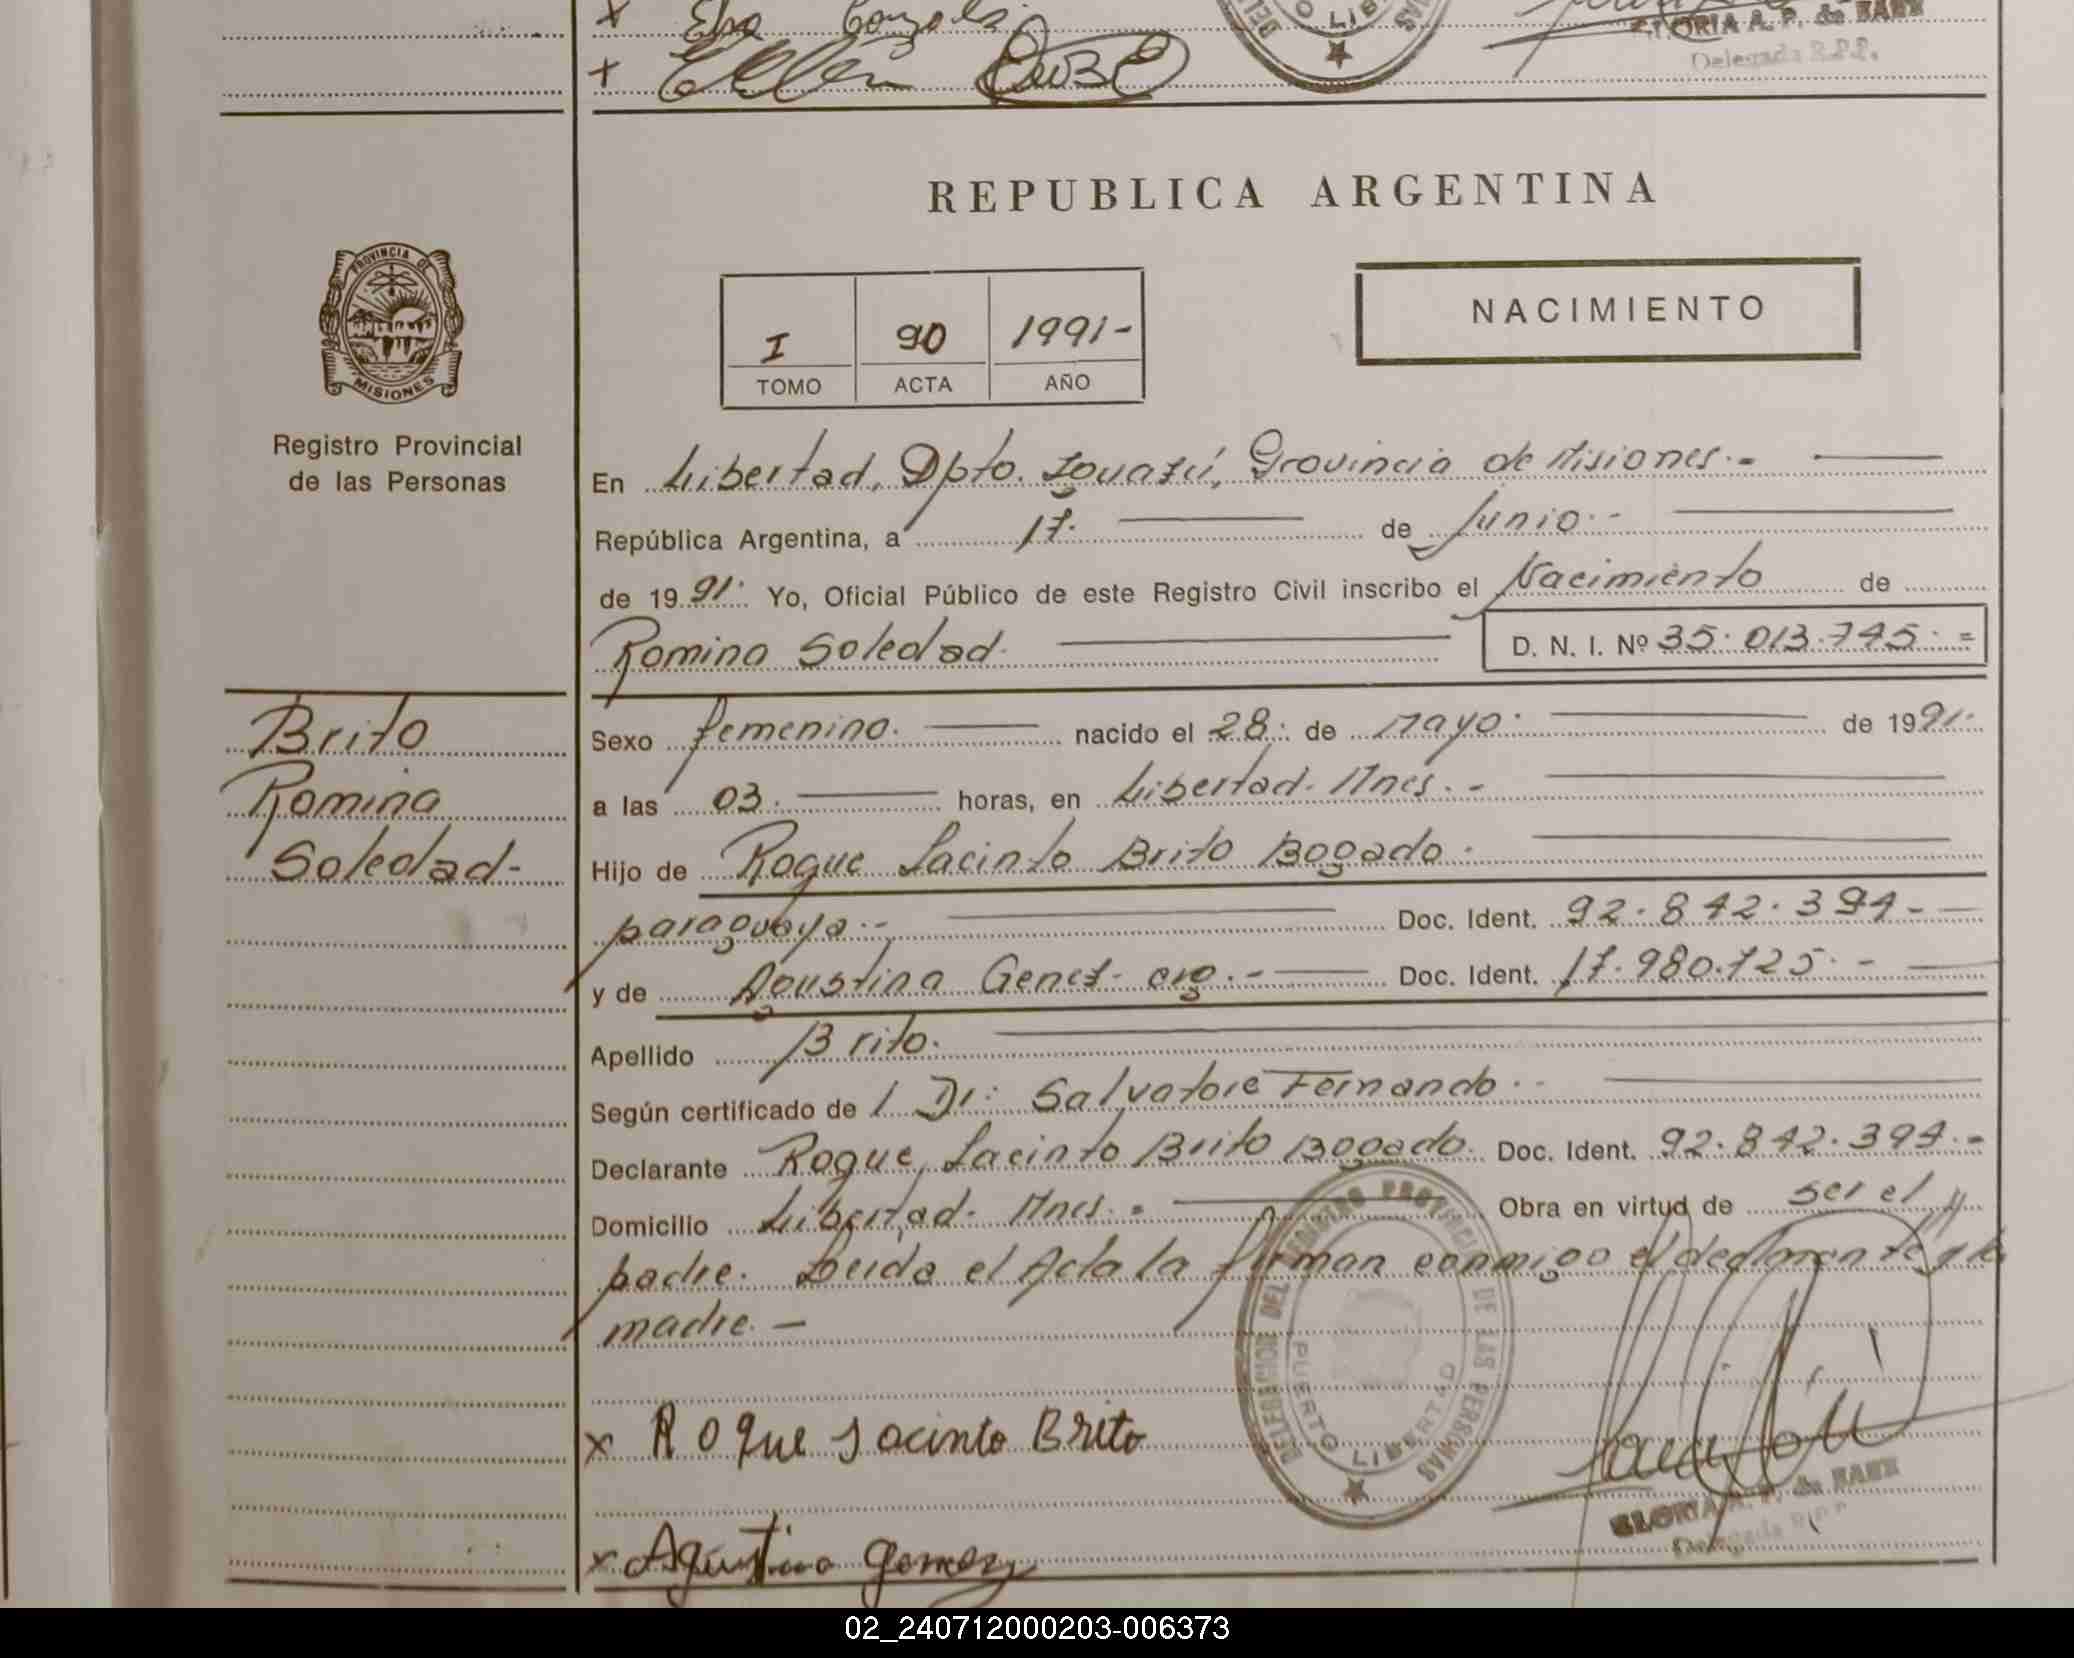 x Elsa Gonzalez
GLORIA A. P. de BAEZ
Delegada R.P.P.
x
REPUBLICA ARGENTINA
PROVINCIA DE MISIONES
NACIMIENTO
I 90 1991-
TOMO ACTA AÑO
Registro Provincial
de las Personas
En Libertad, Dpto. Iguazú, Provincia de Misiones.-
República Argentina, a 17. de Junio.-
de 1991. Yo, Oficial Público de este Registro Civil inscribo el Nacimiento de
Romina Soledad. D. N. I. Nº 35.013.745.=
Brito
Romina
Soledad-
Sexo femenino. nacido el 28. de Mayo. de 1991.
a las 03. horas, en Libertad. Mnes.-
Hijo de Roque Jacinto Brito Bogado.
paraguayo.- Doc. Ident. 92.842.394-
y de Agustina arg.- Doc. Ident. 17.980.725.-
Apellido Brito.
Según certificado de Dr. Salvatore Fernando.-
Declarante Roque Jacinto Brito Bogado. Doc. Ident. 92.842.394.-
Domicilio Libertad. Mnes.- Obra en virtud de ser el
padre. Leida el Acta la firman conmigo el declarante y la
madre.-
DELEGACION DEL REGISTRO PROVINCIAL DE LAS PERSONAS
PUERTO LIBERTAD
x Roque Jacinto Brito
GLORIA A. P. de BAEZ
Delegada R.P.P.
x Agustina Gomez
02_240712000203-006373